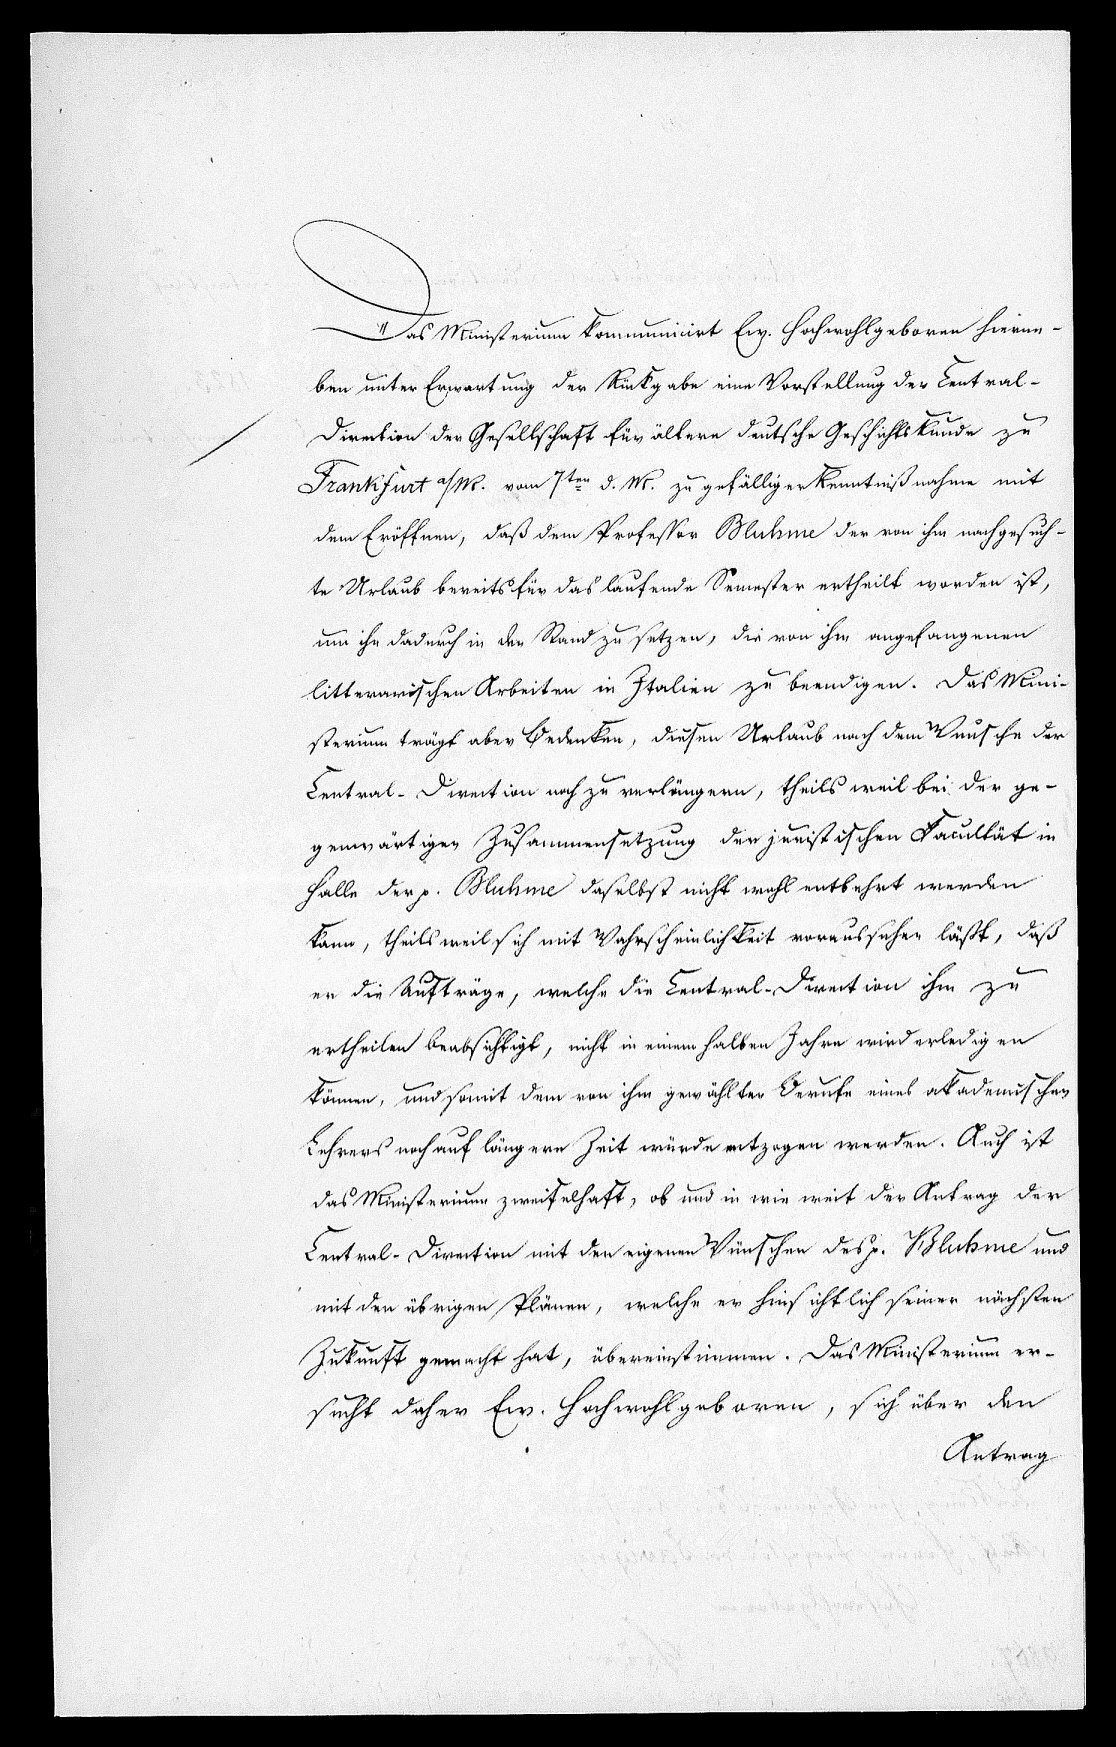 Das Ministerium kommunicirt Ew. Hochwohlgeboren hierne-
ben unter Erwartung der Rückgabe eine Vorstellung der Central-
Direction der Gesellschaft für ältere deutsche Geschichtskunde zu
Frankfurt a/M. vom 7ten d. M. zu gefälliger Kenntnißnahme mit
dem Eröffnen, daß dem Professor Bluhme der von ihm nachgesuch-
te Urlaub bereits für das laufende Semester ertheilt worden ist,
um ihn dadurch in den Stand zu setzen, die von ihm angefangenen
litterarischen Arbeiten in Italien zu beendigen. Das Mini-
sterium trägt aber Bedenken, diesen Urlaub nach dem Wunsche der
Central-Direction noch zu verlängern, theils weil bei der ge-
genwärtigen Zusammensetzung der juristischen Facultät in
Halle der p. Bluhme daselbst nicht wohl entbehrt werden
kann, theils weil sich mit Wahrscheinlichkeit voraussehen läßt, daß
er die Aufträge, welche die Central-Direction ihm zu
ertheilen beabsichtigt, nicht in einem halben Jahre wird erledigen
können, und somit dem von ihm gewählten Berufe eines akademischen
Lehrers noch auf längere Zeit würde entzogen werden. Auch ist
das Ministerium zweifelhaft, ob und in wie weit der Antrag der
Central-Direction mit den eigenen Wünschen des p. Bluhme und
mit den übrigen Plänen, welche er hinsichtlich seiner nächsten
Zukunft gemacht hat, übereinstimmen. Das Ministerium er-
sucht daher Ew. Hochwohlgeboren, sich über den
Antrag